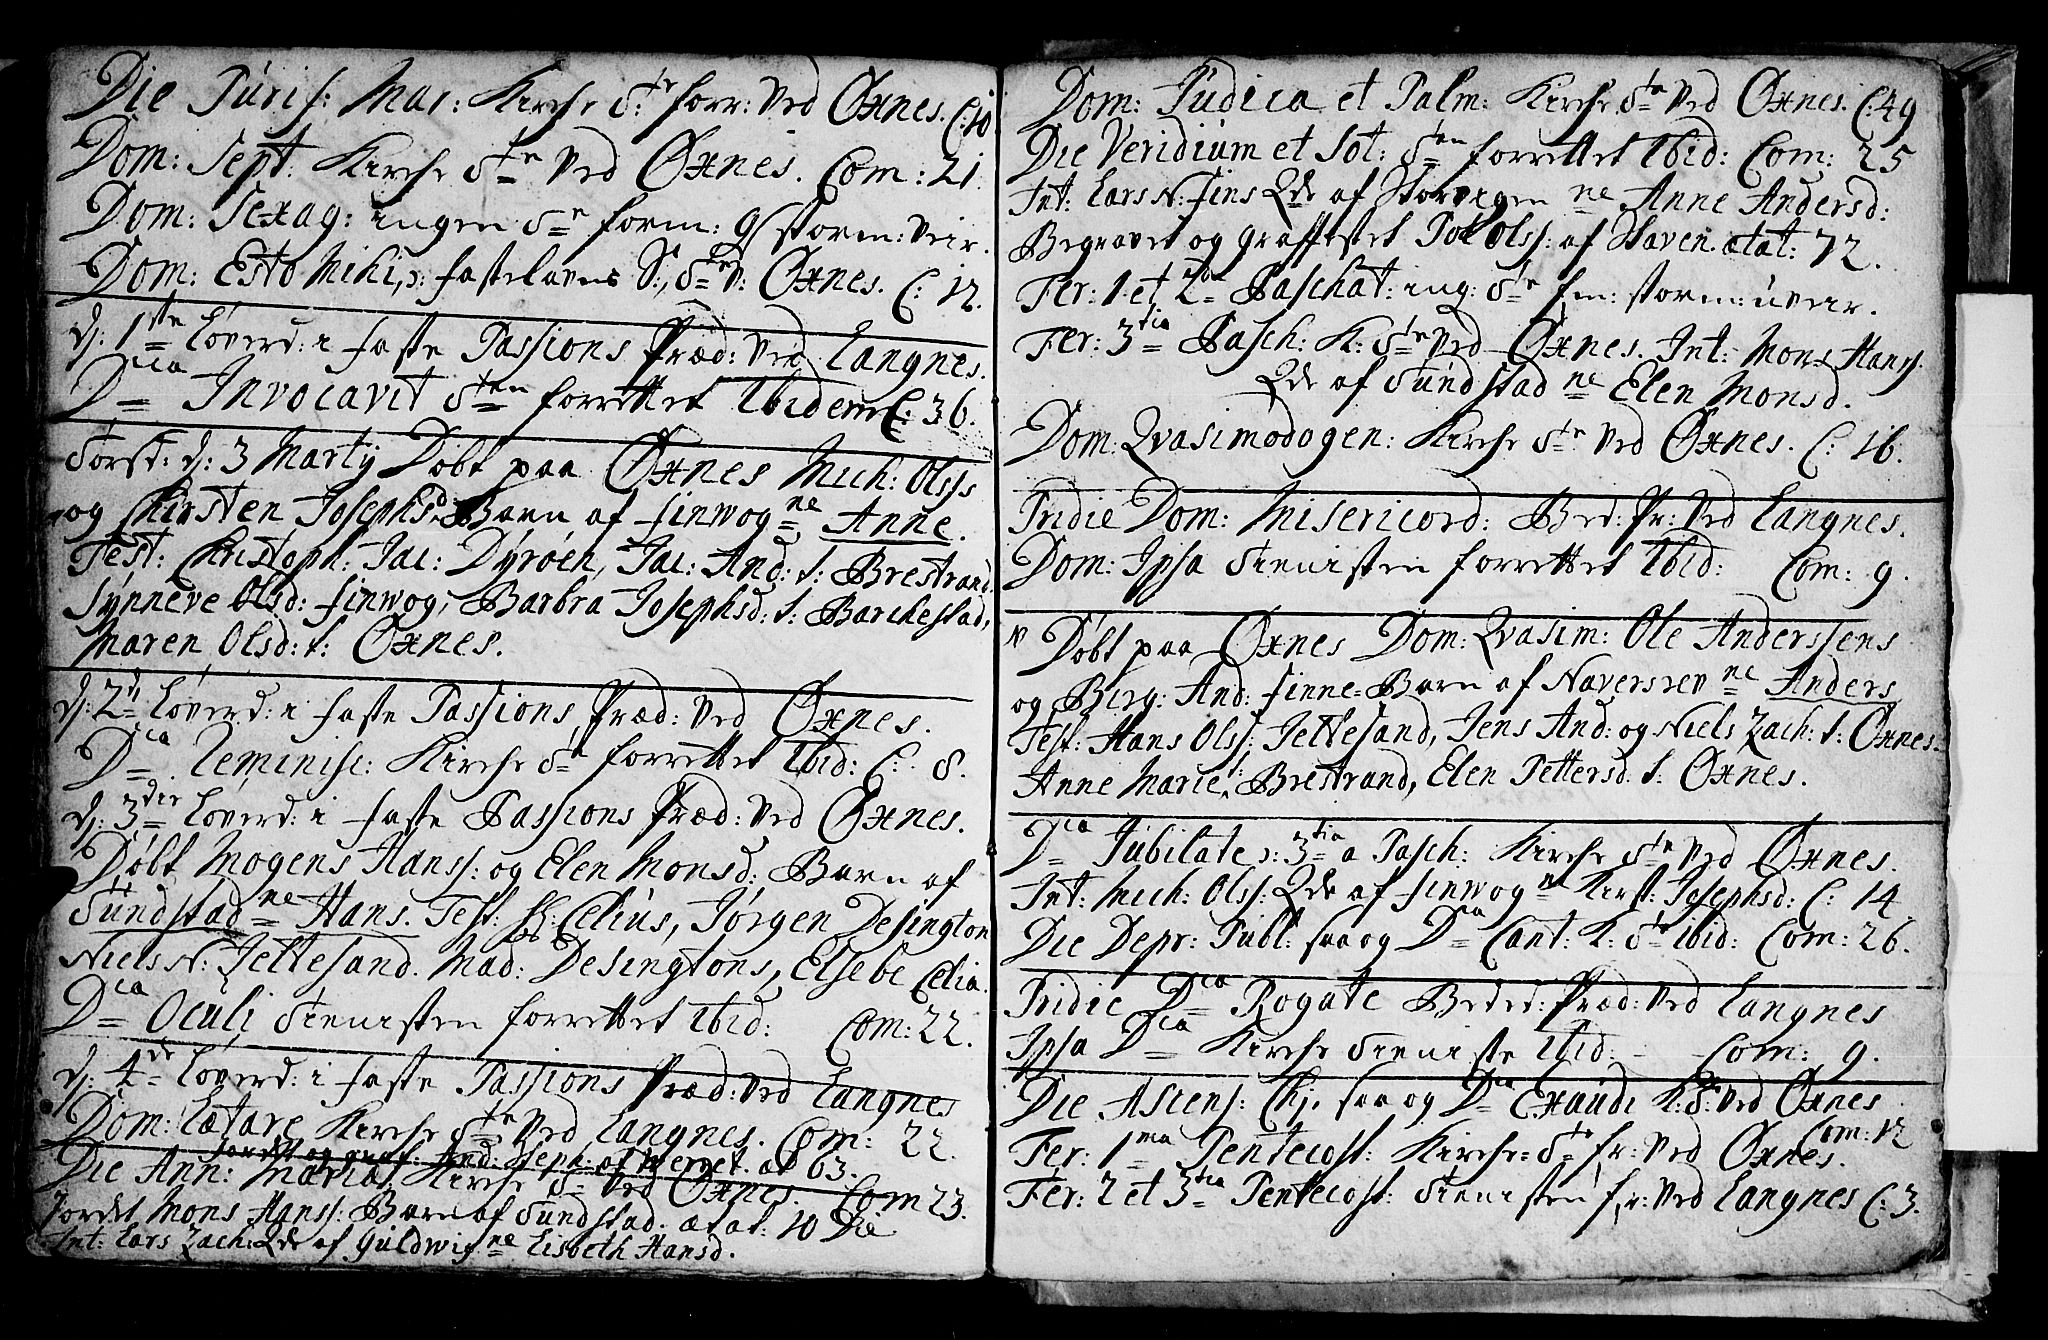 Die Purif: Mar: Kirche S:te forr: ved Øxnes. C: 10
Dom: Sept: Kirche S:te ved Øxnes. Com: 21.
Dom: Sexag: ingen S:te form: g/ storm: veir.
Dom: Esto Mihi, ɔ: fastelavens S:, S:te v: Øxnes. C: 12.
d: 1ste Løverd: i faste Passions Præd: ved Langnes.
Dica Invocavit S:ten forrettet Ibidem C: 36.
Torsd: d: 3 Martij Døbt paa Øxnes Mich: Olss
og Kirsten Josephsd: Barn af finwog ne Anne.
Test: Christoph: Jac: Dyrøen, Jac: And: t: Brestrand
Synneve Olsd: finwog, Barbra Josephsd: t: Barchestad,
Maren Olsd: t: Øxnes.
d: 2d Løverd: i faste Passions Præd: ved Øxnes.
Dca Reminisc: Kirche S:te forrettet Ibid: C: 8.
d: 3die Løverd: i faste Passions Præd: ved Øxnes.
Døbt Mogens Hanss: og Elen Monsd: Barn af
Sundstad ne Hans. Test: Hr: Celius, Jørgen Desington
Niels N: Jeltesand. Mad: Desingtons, Elsebe Celia.
Dca Oculi Tienisten forrettet Ibid: Com: 22.
d: 4de Løverd: i faste Passions Præd: ved Langnes
Dom: Lætare Kirche S:te ved Langnes. Com: 22.
Jordet og graf: And: Jsepr: af at 63.
Die Ann: Mariæ Kirche S:te ved Øxnes. Com 23.
Jordet Mons Hanss: Barn af Sundstad. ætat: 10 Die
Int: Lars Zach: Qde af Guldwig ne Lisbeth Hansd.
Dom: Judica et Palm: Kirche S:te ved Øxnes. C: 49
Die Veridium et Sot: S:ten forrettet Ibid: Com: 25
Int: Lars N: fins Qde af Storvegen ne Anne Andersd:
Begravet og graffestet Pol Olss: af Staven ætat: 72.
Fer: 1 et 2da Paschat: ing: S:te fm: storm: uveir.
Fer: 3tia Pasch: K: S:te ved Øxnes. Int: Mons Hanss.
Qde af Sundstad ne Elen Monsd.
Dom: Qvasimodogen: Kirche S:te ved Øxnes. C: 16.
Pridie Dom: Misericord: Bed: Pr: ved Langnes.
Dom: Ipsa Tienisten forrettet Ibid: Com: 9.
N Døbt paa Øxnes Dom: Qvasim: Ole Anderssens
og Berg: And: finne= Barn af Naversrev ne Anders
Test: Hans Olss: Jeltesand, Jens And: og Niels Zach: t: Øxnes.
Anne Marie t: Brestrand, Elen Pettersd: t: Øxnes.
Dca Jubilate ɔ: 3tia a Pasch: Kirche S:te ved Øxnes.
Int: Mich: Olss: Qde af finwog ne Kirst: Josephsd: C: 14
Die Depr: Publ: saa og Dca Cant: K: S:te Ibid: Com: 26.
Pridie Dca Rogate Beded: Præd: ved Langnes
Ipsa Dca Kirche Tieniste Ibid: - - Com: 9.
Die Ascens: Chj: saa og Dca Exaudi K: S:te ved Øxnes
Com: 12
Fer: 1ma Pentecost: Kirche= S:te fr: ved Øxnes.
Fer: 2 et 3tia Pentecost: Tienisten fr: ved Langnes C: 3.